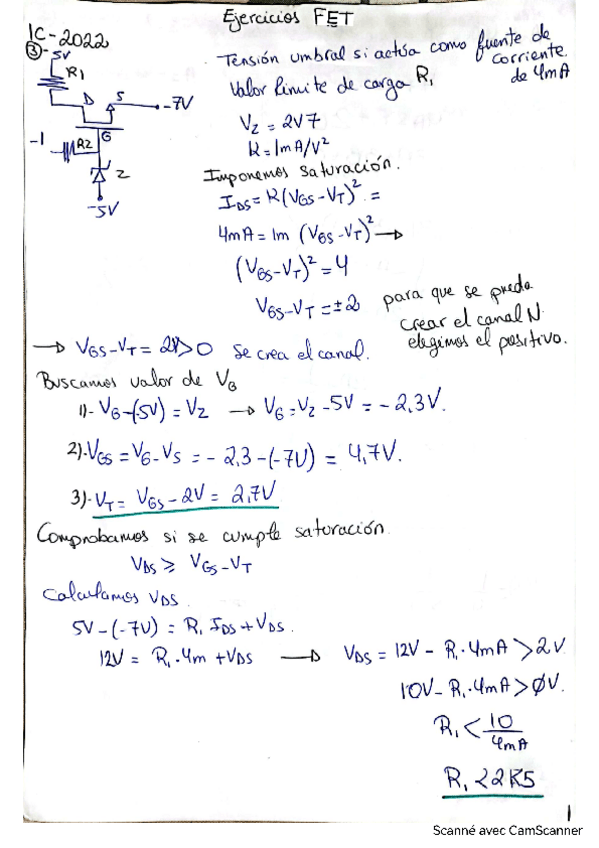 Ejercicios FET
1C-2022
③-
5V
R1
D
S
-7V
G
-1
R2
Z
-5V
Tensión umbral si actúa como fuente de corriente de 4mA
Valor límite de carga R1
Vz = 2V7
K = 1mA/V²
Imponemos saturación.
IDS = K(VGS-VT)² =
4mA = 1m (VGS-VT)² →
(VGS-VT)² = 4
VGS-VT = ±2
para que se pueda
crear el canal N
elegimos el positivo.
→ VGS-VT = 2V>0 se crea el canal.
Buscamos valor de VG
1)- VG-(-5V) = VZ → VG = VZ - 5V = -2,3V.
2)- VGS = VG - VS = -2,3-(-7V) = 4,7V.
3)- VT = VGS - 2V = 2,7V
Comprobamos si se cumple saturación
VDS ⩾ VGS - VT
Calculamos VDS
5V-(-7V) = R1 IDS + VDS.
12V = R1·4m + VDS → VDS = 12V - R1·4mA > 2V
10V - R1·4mA > 0V.
R1 < 10/4mA
R1 < 2K5
1
Scanné avec CamScanner